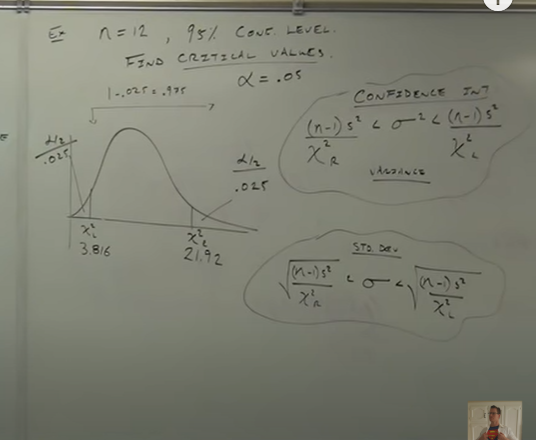 Ex n = 12 , 95% CONF. LEVEL.
FIND CRITICAL VALUES.
α = .05
1 - .025 = .975
α/2
.025
α/2
.025
X²L
3.816
X²R
21.92
CONFIDENCE INT
(n-1)s² / X²R < σ² < (n-1)s² / X²L
VARIANCE
STD. DEV
√((n-1)s² / X²R) < σ < √((n-1)s² / X²L)